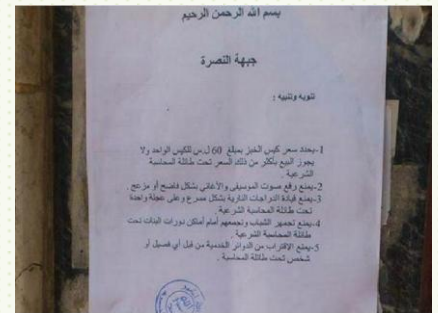 بسم الله الرحمن الرحيم
جبهة النصرة
تنويه وتنبيه :
1-يحدد سعر كيس الخبز بمبلغ 60 ل.س للكيس الواحد ولا
يجوز البيع بأكثر من ذلك السعر تحت طائلة المحاسبة
الشرعية .
2-يمنع رفع صوت الموسيقى والأغاني بشكل فاضح أو مزعج .
3-يمنع قيادة الدراجات النارية بشكل مسرع وعلى عجلة واحدة
تحت طائلة المحاسبة الشرعية .
4-يمنع تجمهر الشباب وتجمعهم أمام أماكن دورات البنات تحت
طائلة المحاسبة الشرعية .
5-يمنع الإقتراب من الدوائر الخدمية من قبل أي فصيل أو
شخص تحت طائلة المحاسبة .